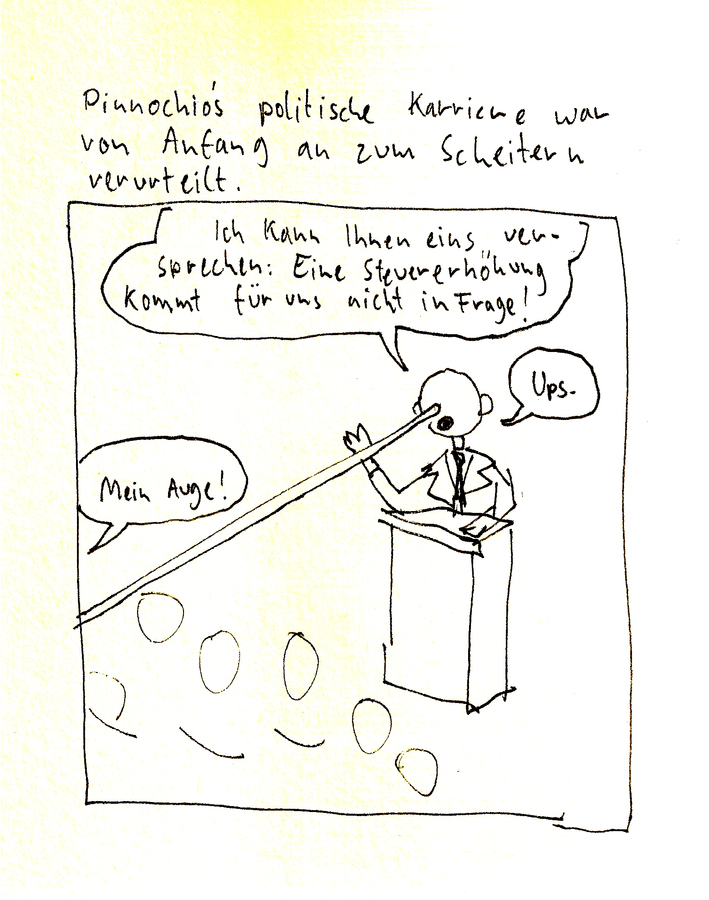 Pinnochio's politische Karriere war
von Anfang an zum Scheitern
verurteilt.
Ich kann Ihnen eins ver-
sprechen: Eine Steuererhöhung
kommt für uns nicht in Frage!
Ups.
Mein Auge!